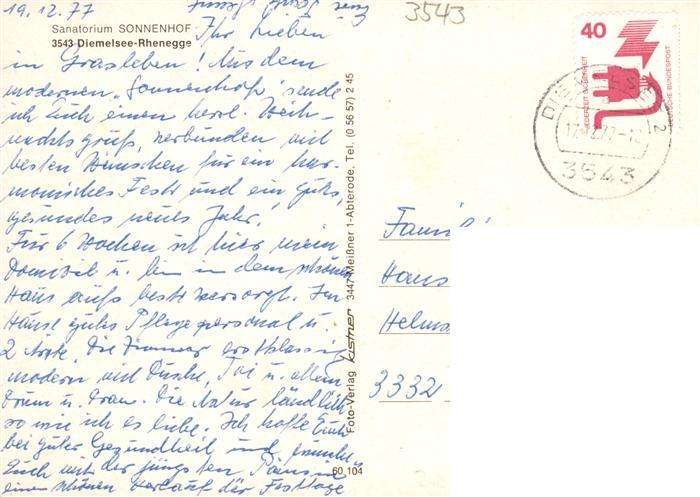 19.12.77
3543
Sanatorium SONNENHOF
3543 Diemelsee-Rhenegge
Ihr Lieben
in Grasleben! Aus dem
modernen "Sonnenhof" sende
ich Euch einen herzl. Weih-
nachtsgruß, verbunden mit
besten Wünschen für ein har-
monisches Fest und ein gutes,
gesundes neues Jahr!
Für 6 Wochen ist hier mein
Domizil u. bin in dem schönen
Haus aufs beste versorgt. Im
Hause gutes Pflegepersonal u.
2 Ärzte, die Zimmer erstklassig
modern mit Dusche, u. allem
Drum u. Dran. Die Natur ländlich
so wie ich es liebe. Ich hoffe Euch
bei guter Gesundheit und wünsche
Euch mit der jüngsten
einen schönen Verlauf der Festtage
Foto-Verlag kistner 3447 Meißner 1-Abterode, Tel. (0 56 57) 2 45
60 104
40
JEDERZEIT SICHERHEIT
DEUTSCHE BUNDESPOST
3543
Hans
3332